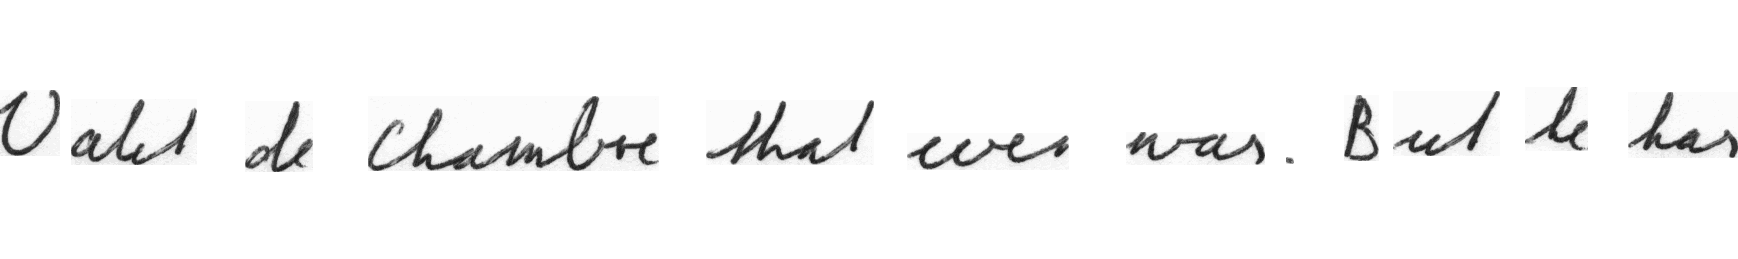 Valet de Chambre that ever was. But he has